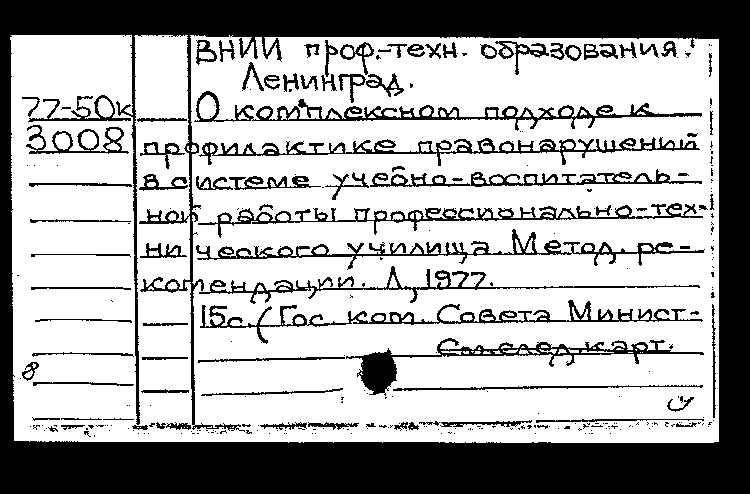 ВНИИ проф.-техн. образования.
Ленинград.
77-50к О комплексном подходе к
3008 профилактике правонарушений
в системе учебно-воспитатель-
ной работы профессионально-тех-
нического училища. Метод. ре-
комендации. Л., 1977.
15с. (Гос. ком. Совета Минист-
См.след.карт.
8